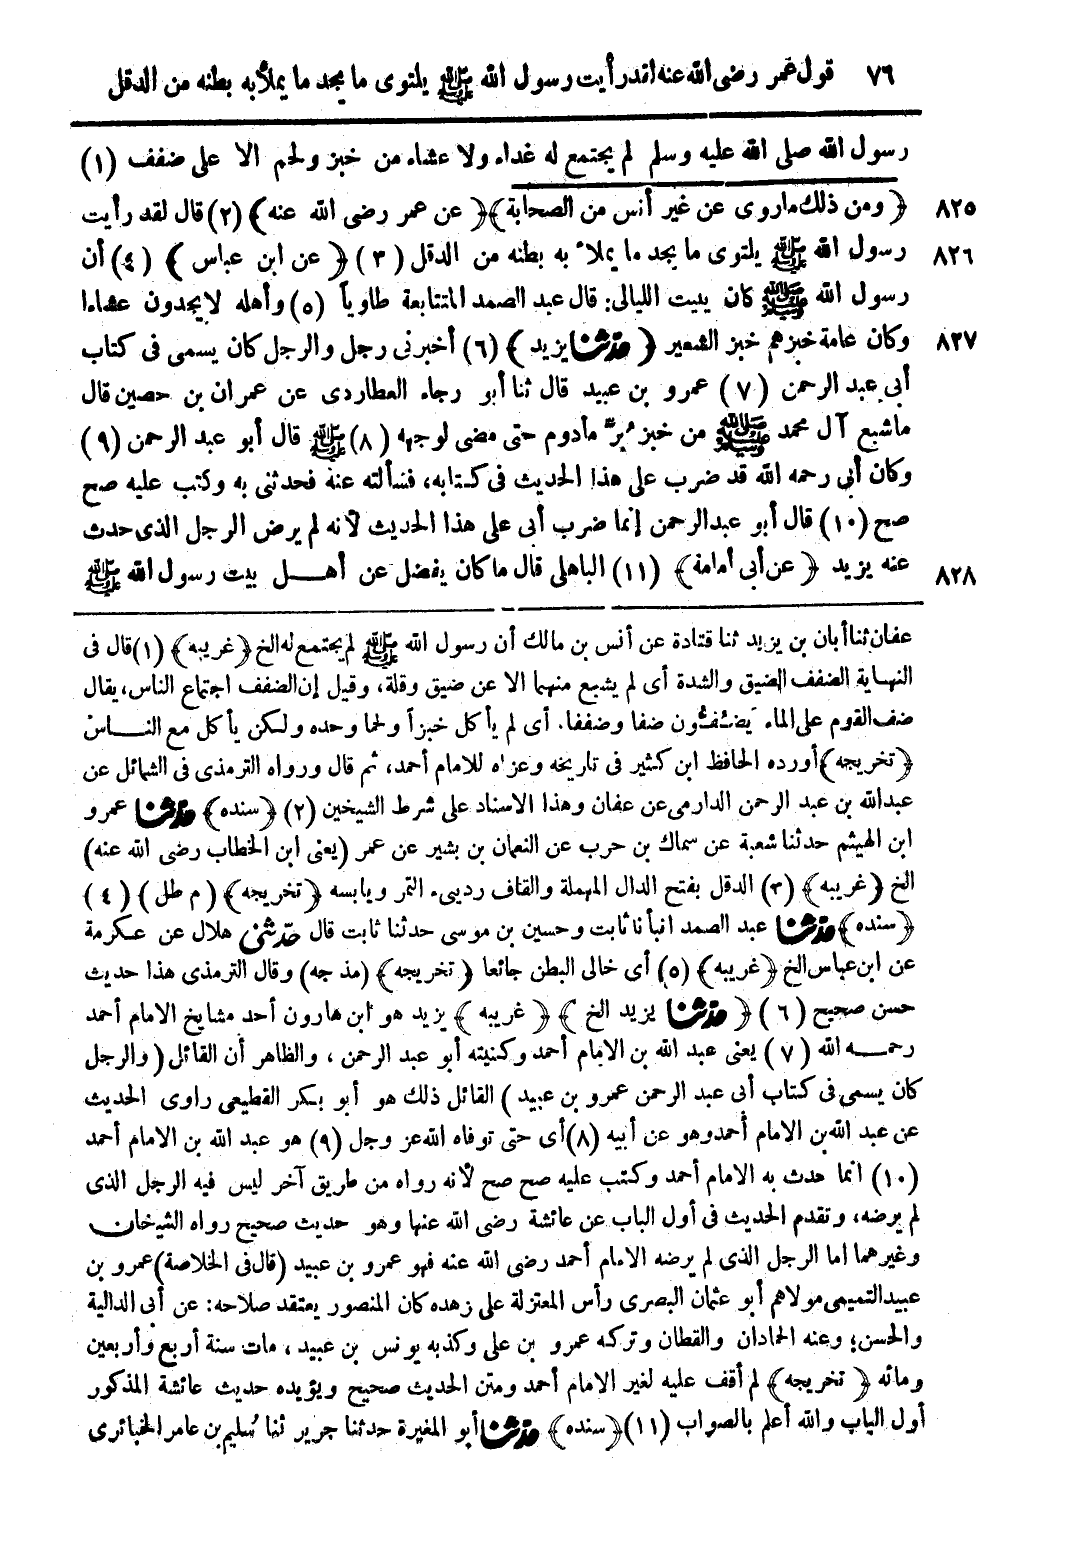 ٧٦ قول عمر رضى الله عنه لقد رأيت رسول الله ﷺ يلتوى ما يجد ما يملأ به بطنه من الدقل
رسول الله صلى الله عليه وسلم لم يجتمع له غداء ولا عشاء من خبز ولحم الا على ضفف (١)
٨٢٥ ﴿ ومن ذلك ماروى عن غير أنس من الصحابة ﴾ ﴿ عن عمر رضى الله عنه ﴾ (٢) قال لقد رأيت
٨٢٦ رسول الله ﷺ يلتوى ما يجد ما يملأ به بطنه من الدقل (٣) ﴿ عن ابن عباس ﴾ (٤) أن
رسول الله ﷺ كان يبيت الليالى: قال عبد الصمد المتتابعة طاويا (٥) وأهله لا يجدون عشاءا
٨٢٧ وكان عامة خبزهم خبز الشعير ﴿ حدثنا يزيد ﴾ (٦) أخبرنى رجل والرجل كان يسمى فى كتاب
أبى عبد الرحمن (٧) عمرو بن عبيد قال ثنا أبو رجاء العطاردى عن عمران بن حصين قال
ماشبع آل محمد ﷺ من خبز بر مأدوم حتى مضى لوجهه (٨) ﷺ قال أبو عبد الرحمن (٩)
وكان أبى رحمه الله قد ضرب على هذا الحديث فى كتابه، فسألته عنه فحدثنى به وكتب عليه صح
صح (١٠) قال أبو عبد الرحمن إنما ضرب أبى على هذا الحديث لأنه لم يرض الرجل الذى حدث
٨٢٨ عنه يزيد ﴿ عن أبى أمامة ﴾ (١١) الباهلى قال ما كان يفضل عن أهـل بيت رسول الله ﷺ
عفان ثنا أبان بن يزيد ثنا قتادة عن أنس بن مالك أن رسول الله ﷺ لم يجتمع له الخ ﴿ غريبه ﴾ (١) قال فى
النهاية الضفف الضيق والشدة أى لم يشبع منهما الا عن ضيق وقلة، وقيل إن الضفف اجتماع الناس، يقال
ضف القوم على الماء يضفّون ضفا وضففا. أى لم يأكل خبزاً ولحما وحده ولكن يأكل مع النـاس
﴿ تخريجه ﴾ أورده الحافظ ابن كثير فى تاريخه وعزاه للامام أحمد، ثم قال ورواه الترمذى فى الشمائل عن
عبدالله بن عبد الرحمن الدارمى عن عفان وهذا الاسناد على شرط الشيخين (٢) ﴿ سنده ﴾ حدثنا عمرو
ابن الهيثم حدثنا شعبة عن سماك بن حرب عن النعمان بن بشير عن عمر (يعنى ابن الخطاب رضى الله عنه)
الخ ﴿ غريبه ﴾ (٣) الدقل بفتح الدال المهملة والقاف ردىء التمر ويابسه ﴿ تخريجه ﴾ (م طل) (٤)
﴿ سنده ﴾ حدثنا عبد الصمد انبأنا ثابت وحسين بن موسى حدثنا ثابت قال حدثنى هلال عن عكرمة
عن ابن عباس الخ ﴿ غريبه ﴾ (٥) أى خالى البطن جائعا ﴿ تخريجه ﴾ (مذ جه) وقال الترمذى هذا حديث
حسن صحيح (٦) ﴿ حدثنا يزيد الخ ﴾ ﴿ غريبه ﴾ يزيد هو ابن هارون أحد مشايخ الامام أحمد
رحمـه الله (٧) يعنى عبد الله بن الامام أحمد وكنيته أبو عبد الرحمن ، والظاهر أن القائل (والرجل
كان يسمى فى كتاب أبى عبد الرحمن عمرو بن عبيد) القائل ذلك هو أبو بكر القطيعى راوى الحديث
عن عبد الله بن الامام أحمد وهو عن أبيه (٨) أى حتى توفاه الله عز وجل (٩) هو عبد الله بن الامام أحمد
(١٠) انما حدث به الامام أحمد وكتب عليه صح صح لأنه رواه من طريق آخر ليس فيه الرجل الذى
لم يرضه، وتقدم الحديث فى أول الباب عن عائشة رضى الله عنها وهو حديث صحيح رواه الشيخان
وغيرهما اما الرجل الذى لم يرضه الامام أحمد رضى الله عنه فهو عمرو بن عبيد (قال فى الخلاصة) عمرو بن
عبيد التميمى مولاهم أبو عثمان البصرى رأس المعتزلة على زهده كان المنصور يعتقد صلاحه: عن أبى الدالية
والحسن؛ وعنه الحمادان والقطان وتركه عمرو بن على وكذبه يونس بن عبيد ، مات سنة أربع وأربعين
ومائه ﴿ تخريجه ﴾ لم أقف عليه لغير الامام أحمد ومتن الحديث صحيح ويؤيده حديث عائشة المذكور
أول الباب والله أعلم بالصواب (١١) ﴿ سنده ﴾ حدثنا أبو المغيرة حدثنا جرير ثنا سُليم بن عامر الخبائرى